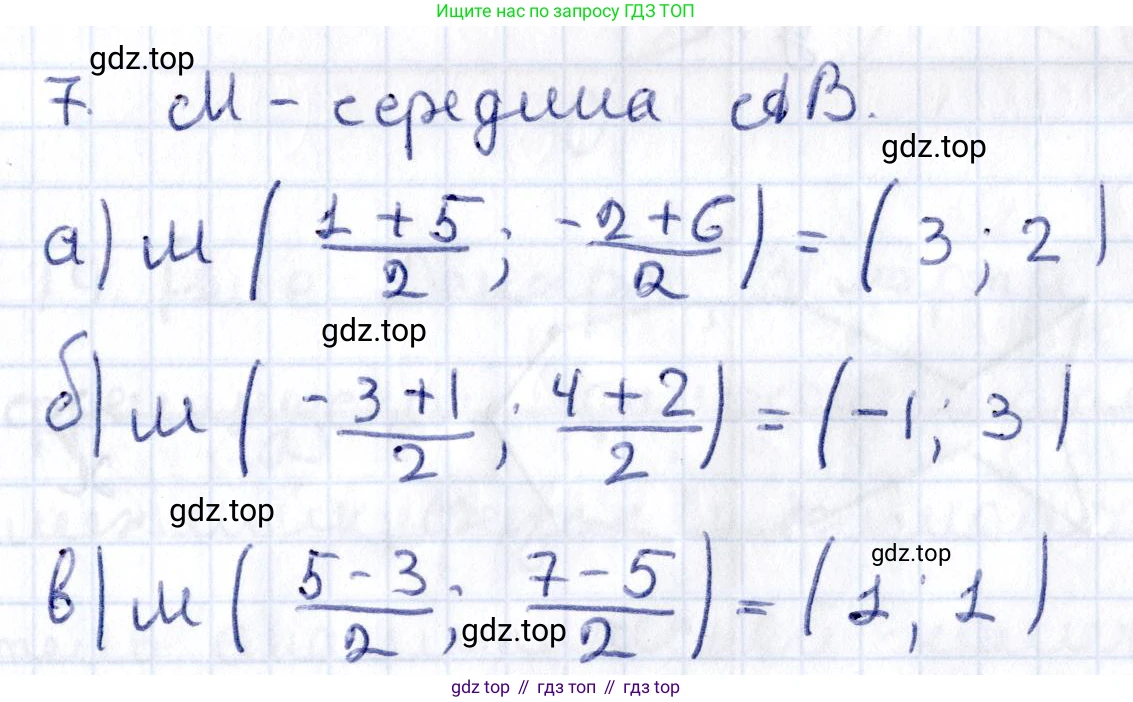 Ищите нас по запросу ГДЗ ТОП
gdz.top
7. M - середина AB.
gdz.top
а) M ( (1 + 5)/2 ; (-2 + 6)/2 ) = ( 3 ; 2 )
gdz.top
б) M ( (-3 + 1)/2 ; (4 + 2)/2 ) = ( -1 ; 3 )
gdz.top
gdz.top
в) M ( (5 - 3)/2 ; (7 - 5)/2 ) = ( 1 ; 1 )
gdz.top
gdz top // гдз топ // гдз top